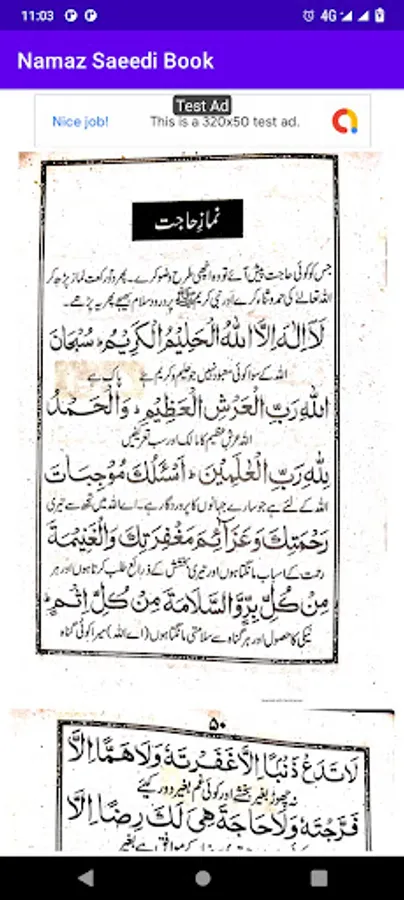 11:03
4G
Namaz Saeedi Book
Test Ad
Nice job!
This is a 320x50 test ad.
نماز حاجت
جس کو کوئی حاجت پیش آئے تو وہ اچھی طرح وضو کرے۔ پھر دو رکعت نماز پڑھ کر
اللہ تعالےٰ کی حمد و ثناء کرے اور نبی کریم ﷺ پر درود و سلام بھیجے پھر یہ پڑھے۔
لَآ اِلٰہَ اِلَّا اللّٰہُ الْحَلِیْمُ الْکَرِیْمُ، سُبْحَانَ
اللہ کے سوا کوئی معبود نہیں جو حلیم و کریم ہے پاک ہے
اللّٰہِ رَبِّ الْعَرْشِ الْعَظِیْمِ، وَالْحَمْدُ
اللہ عرش عظیم کا مالک اور سب تعریفیں
لِلّٰہِ رَبِّ الْعٰلَمِیْنَ، اَسْئَلُکَ مُوْجِبَاتِ
اللہ کے لئے ہے جو سارے جہانوں کا پروردگار ہے۔ اے اللہ میں تجھ سے تیری
رَحْمَتِکَ وَعَزَآئِمَ مَغْفِرَتِکَ وَالْغَنِیْمَۃَ
رحمت کے اسباب مانگتا ہوں اور تیری بخشش کے ذرائع طلب کرتا ہوں اور ہر
مِنْ کُلِّ بِرٍّ وَّالسَّلَامَۃَ مِنْ کُلِّ اِثْمٍ،
نیکی کا حصول اور ہر گناہ سے سلامتی مانگتا ہوں (اے اللہ) میرا کوئی گناہ
۵۰
لَا تَدَعْ ذَنْبًا اِلَّا غَفَرْتَہٗ وَلَا ھَمًّا اِلَّا
نہ چھوڑ بغیر بخشے اور کوئی غم بغیر دور کیئے
فَرَّجْتَہٗ وَلَا حَاجَۃً ھِیَ لَکَ رِضًا اِلَّا